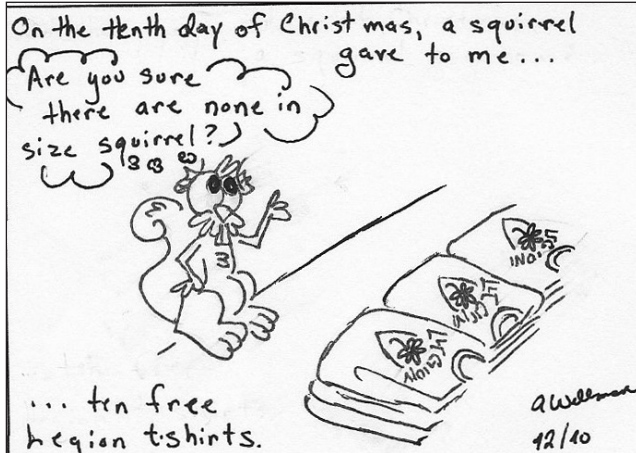 On the tenth day of Christmas, a squirrel
gave to me...
Are you sure
there are none in
size squirrel?
... ten free
Legion t-shirts.
LEGION
LEGION
LEGION
a Wellman
12/10